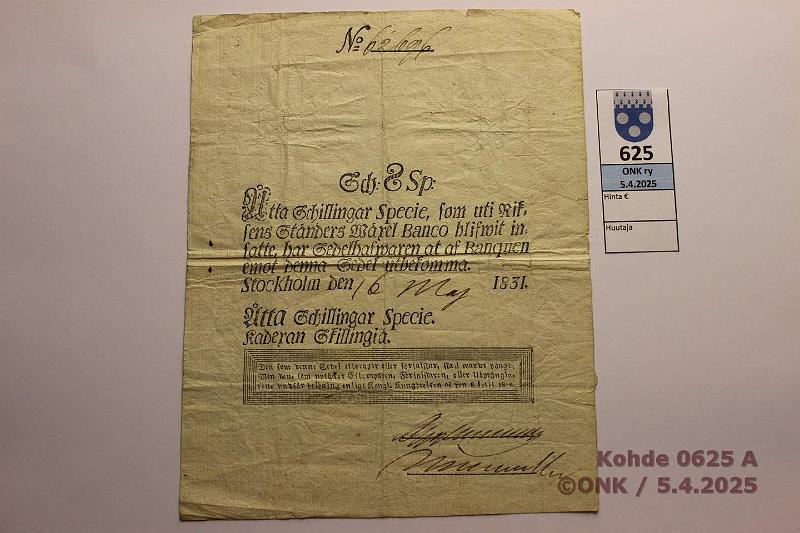 No 62696
Sch: 8 Sp:
Åtta Schillingar Specie, som uti Rik-
sens Ständers Wäxel Banco blifwit in-
satte, har Sedelhafwaren at af Banquen
emot denna Sedel utbekomma.
Stockholm den 16 Maj 1831.
Åtta Schillingar Specie.
Kadexan Skillingiä.
Den som denne Sedel eftergör eller förfalskar, skall warda hängd;
Men den, som uptäcker Efteraparen, Förfalskaren, eller Utprångla-
ren, undfår belöning enligt Kongl. Kungörelsen af den
625
ONK ry
5.4.2025
Hinta €
Huutaja
Kohde 0625 A
©ONK / 5.4.2025